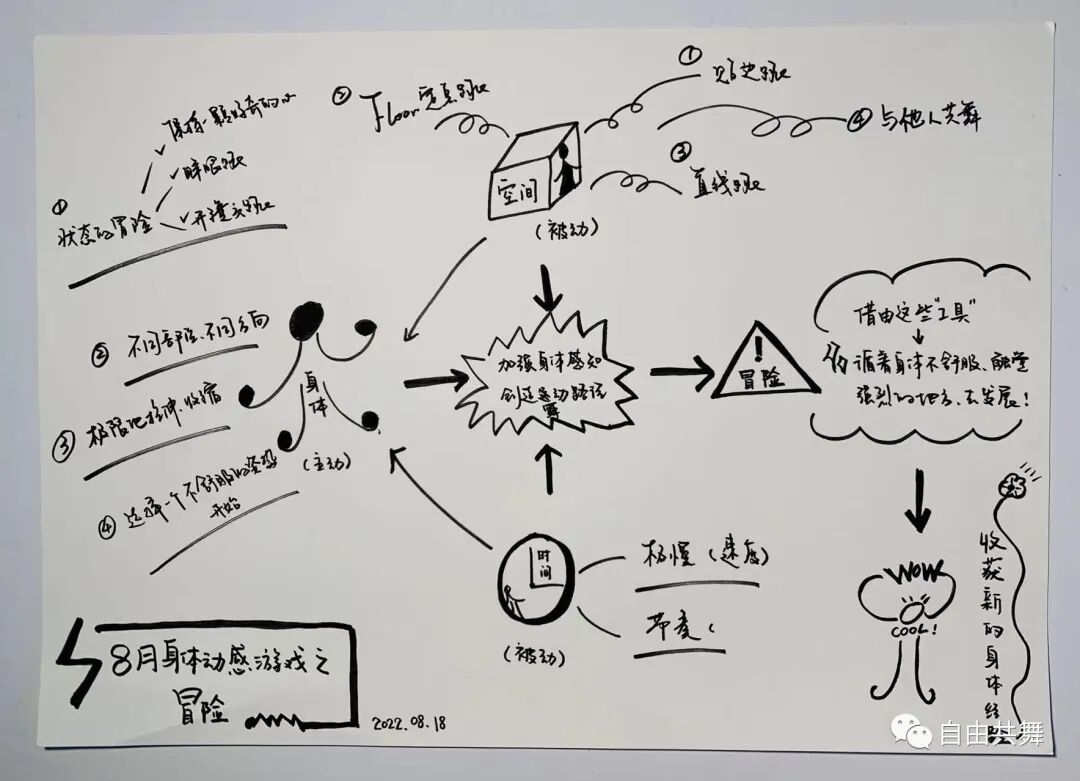 ①
状态的冒险
保持一颗好奇的心
睁眼跳
开程式跳
② 不同部位、不同方向
③ 极限地拉伸、收缩
④ 选择一个不舒服的姿势
开始
身体
(主动)
② Floor 定点跳
① 贴地跳
④ 与他人共舞
③ 直线跳
空间
(被动)
加强身体感知
创造运动路径
!
冒险
借由这些"工具"
循着身体不舒服、触觉
强烈的地方、去发展!
时间
(被动)
极慢(速度)
节奏
WOW
COOL!
收获新的身体经验
8月身体动感游戏之
冒险
2022.08.18
自由共舞